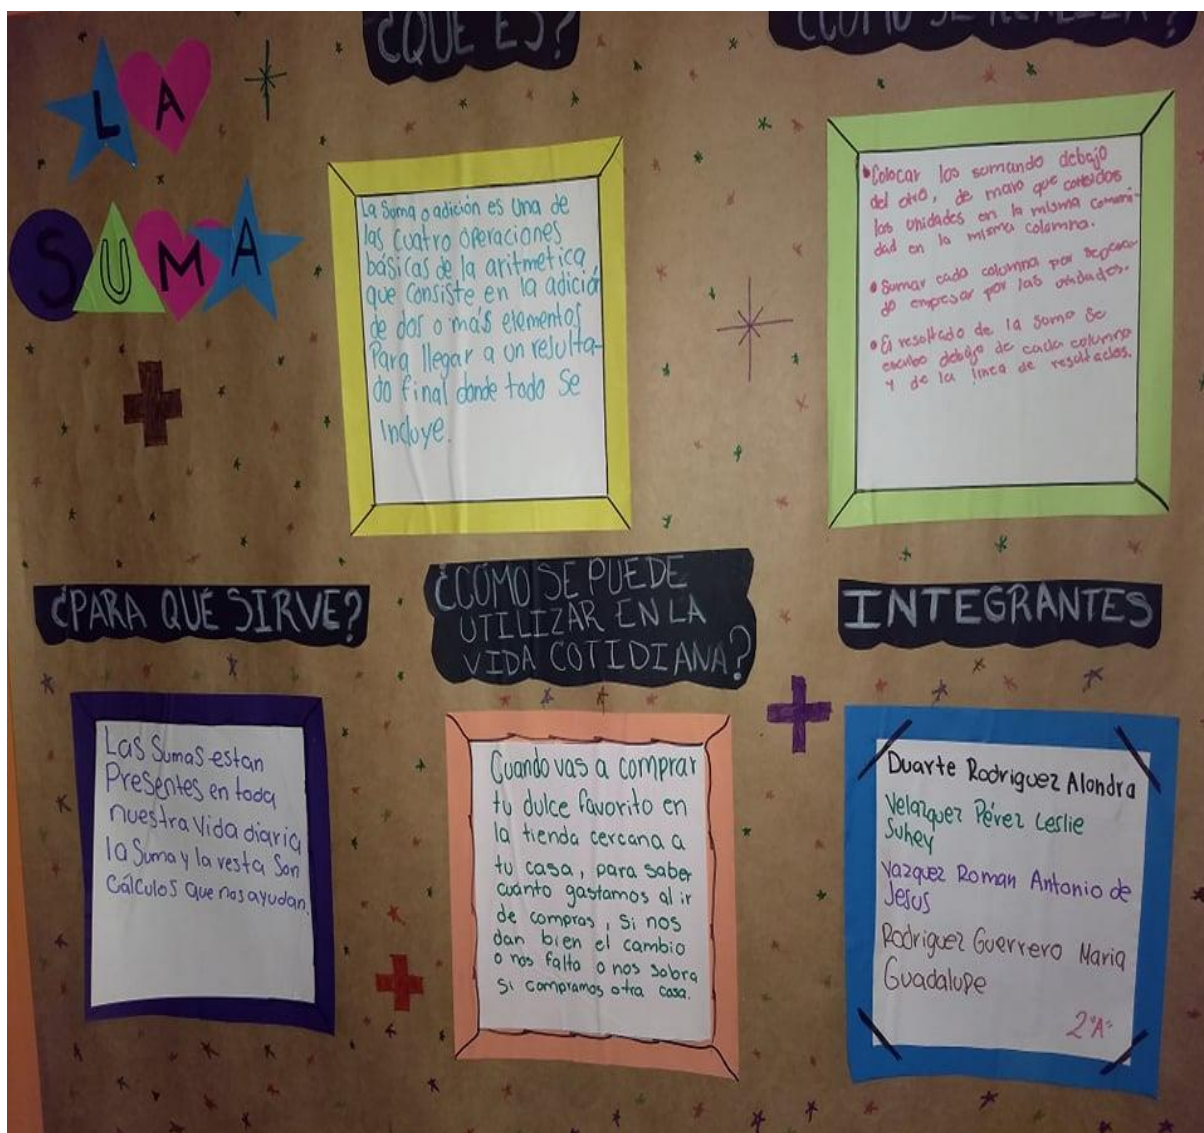 LA
SUMA
¿QUÉ ES?
La Suma o adición es una de
las cuatro operaciones
básicas de la aritmetica
que consiste en la adición
de dos o más elementos
Para llegar a un relulta-
do final donde todo se
incluye.
¿CÓMO SE REALIZA?
• Colocar los sumando debajo
del otro, de
las unidades en la misma
dad en la misma columna.
• Sumar cada columna por
do por las unidades.
• El resoltado de la suma se
debajo de cada columna
y de la linea de resoltados.
¿PARA QUÉ SIRVE?
Las Sumas estan
Presentes en toda
nuestra Vida diaria
la Suma y la resta Son
Cálculos que nos ayudan.
¿CÓMO SE PUEDE
UTILIZAR EN LA
VIDA COTIDIANA?
Cuando vas a comprar
tu dulce favorito en
la tienda cercana a
tu casa, para saber
cuánto gastamos al ir
de compras, Si nos
dan bien el cambio
o nos falta o nos sobra
Si compramos otra casa.
INTEGRANTES
Duarte Rodriguez Alondra
Velazquez Pérez Leslie
Suhey
Vazquez Roman Antonio de
Jesus
Rodriguez Guerrero Maria
Guadalupe
2°"A"